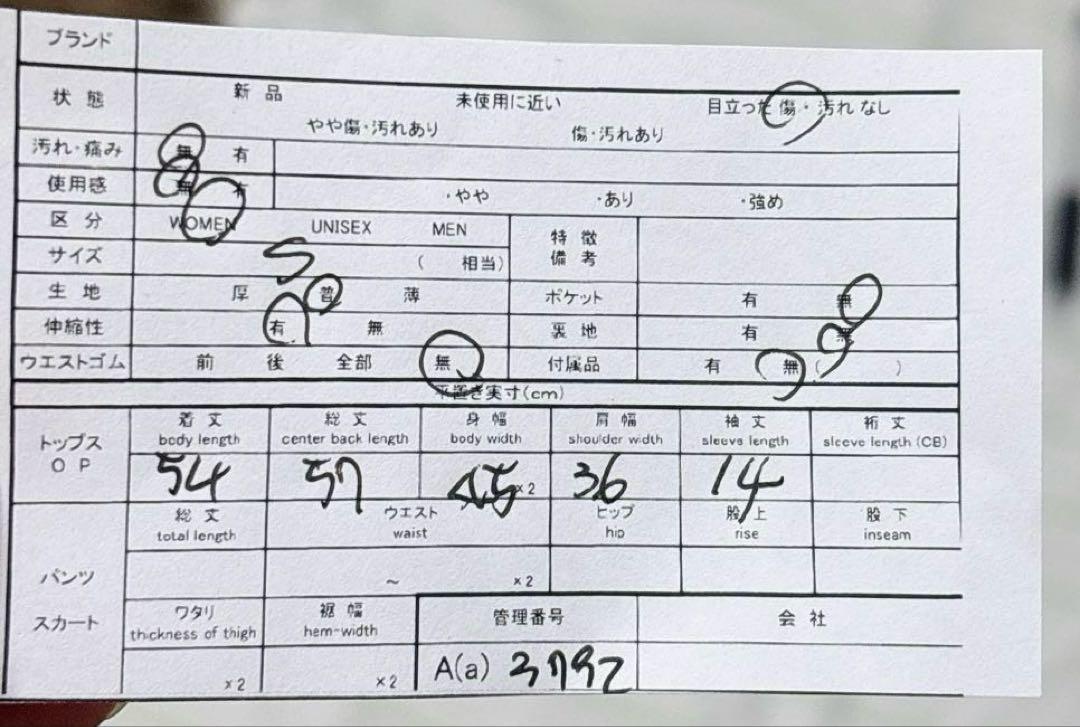 ブランド
状態 新品 未使用に近い 目立った傷・汚れなし
やや傷・汚れあり 傷・汚れあり
汚れ・痛み 無 有
使用感 無 有 ・やや ・あり ・強め
区分 WOMEN UNISEX MEN 特徴
備考
サイズ S ( 相当)
生地 厚 普 薄 ポケット 有 無
伸縮性 有 無 裏地 有 無
ウエストゴム 前 後 全部 無 付属品 有 無 ( )
平置き実寸(cm)
トップス
OP
着丈 総丈 身幅 肩幅 袖丈 裄丈
body length center back length body width shoulder width sleeve length sleeve length (CB)
54 57 45 ×2 36 14
パンツ
スカート
総丈 ウエスト ヒップ 股上 股下
total length waist hip rise inseam
~ ×2
ワタリ 裾幅 管理番号 会社
thickness of thigh hem-width
×2 ×2 A(a) 3792